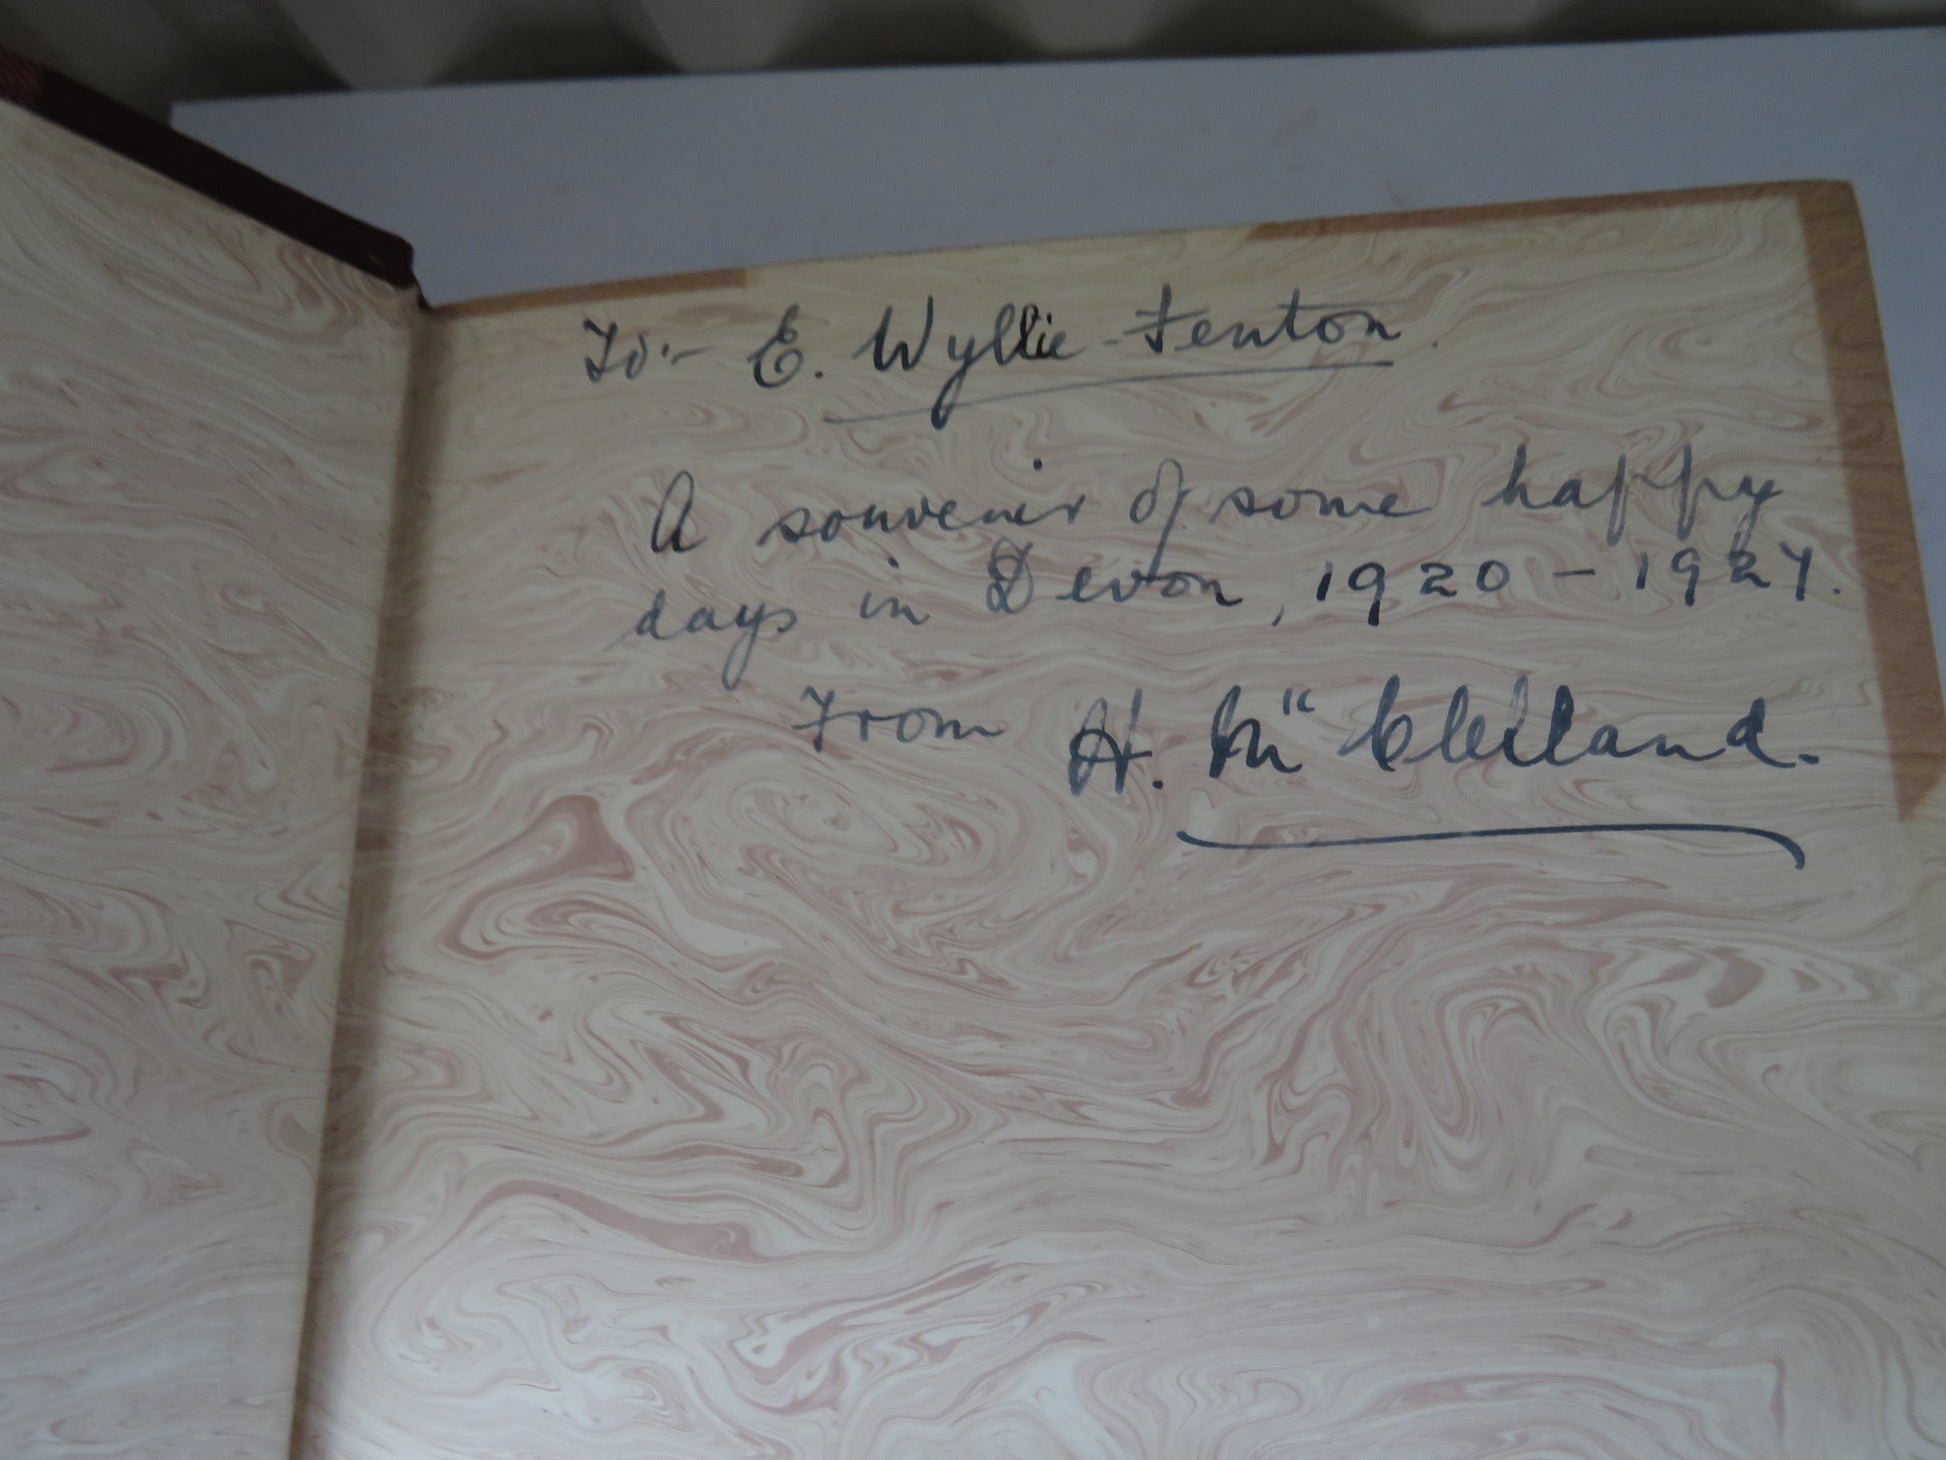 To:- E. Wyllie-Fenton.
A souvenir of some happy
days in Devon, 1920-1927.
From H. Mc Clelland.